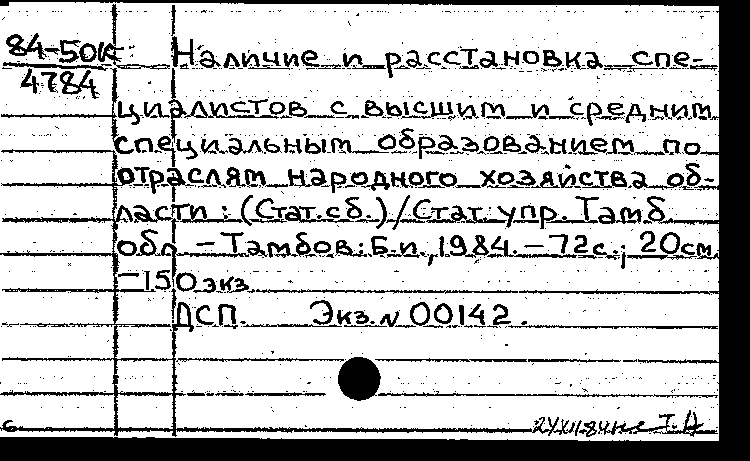 84-50К
4784
Наличие и расстановка спе-
циалистов с высшим и средним
специальным образованием по
отраслям народного хозяйства об-
ласти: (Стат. сб.)/Стат. упр. Тамб.
обл. – Тамбов: Б.и., 1984. – 72 с.; 20 см.
– 150 экз.
ДСП. Экз. № 00142.